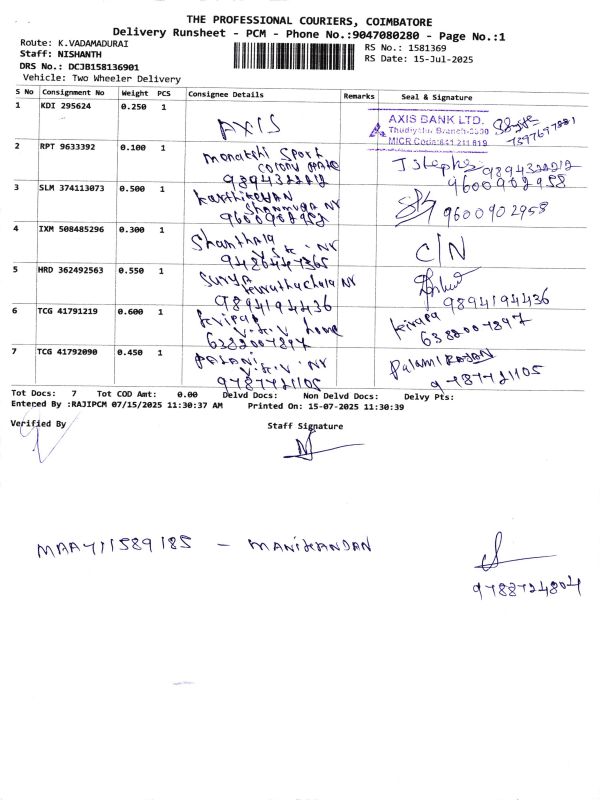 THE PROFESSIONAL COURIERS, COIMBATORE
Delivery Runsheet - PCM - Phone No.:9047080280 - Page No.:1
Route: K.VADAMADURAI
RS No.: 1581369
Staff: NISHANTH
RS Date: 15-Jul-2025
DRS No.: DCJB158136901
Vehicle: Two Wheeler Delivery
S No Consignment No Weight PCS Consignee Details Remarks Seal & Signature
1 KDI 295624 0.250 1 AXIS
AXIS BANK LTD.
MICR Code:641 211 019
2 RPT 9633392 0.100 1
9894322212
9894322212
9600902958
3 SLM 374113073 0.500 1 Karthikeyan
Shanmuga Nr
9600902958
9600902958
4 IXM 508485296 0.300 1 Shanthala
V.S.K. Nr
C/N
5 HRD 362492563 0.550 1 Surya
9894194436
9894194436
6 TCG 41791219 0.600 1
V.K.V home
6382007897
6382007897
7 TCG 41792090 0.450 1 PALANI
V.K.V. Nr
9787721105
9787721105
Tot Docs: 7 Tot COD Amt: 0.00 Delvd Docs: Non Delvd Docs: Delvy Pts:
Enteced By :RAJIPCM 07/15/2025 11:30:37 AM Printed On: 15-07-2025 11:30:39
Verified By
Staff Signature
MAA711589185 - MANIKANDAN
9788724804